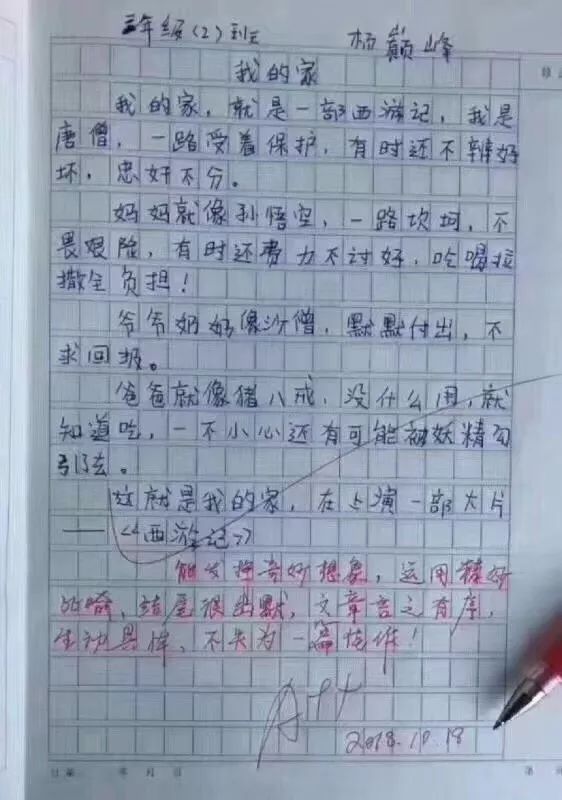 三年级（2）班 杨巅峰
我的家
我的家，就是一部西游记，我是
唐僧，一路受着保护，有时还不辨好
坏，忠奸不分。
妈妈就像孙悟空，一路坎坷，不
畏艰险，有时还费力不讨好，吃喝拉
撒全负担！
爷爷奶奶像沙僧，默默付出，不
求回报。
爸爸就像猪八戒，没什么用，就
知道吃，一不小心还有可能被妖精勾
引去。
这就是我的家，在上演一部大片
——《西游记》
能发挥奇妙想象，运用精妙
比喻，结尾很幽默，文章言之有序，
生动具体，不失为一篇佳作！
A++
2018.10.18